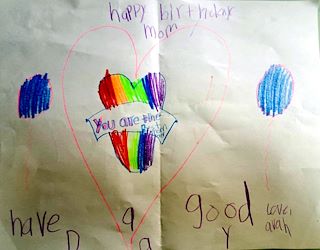 happy birthday
mom
You are the
have a good
D a y
Love,
avah